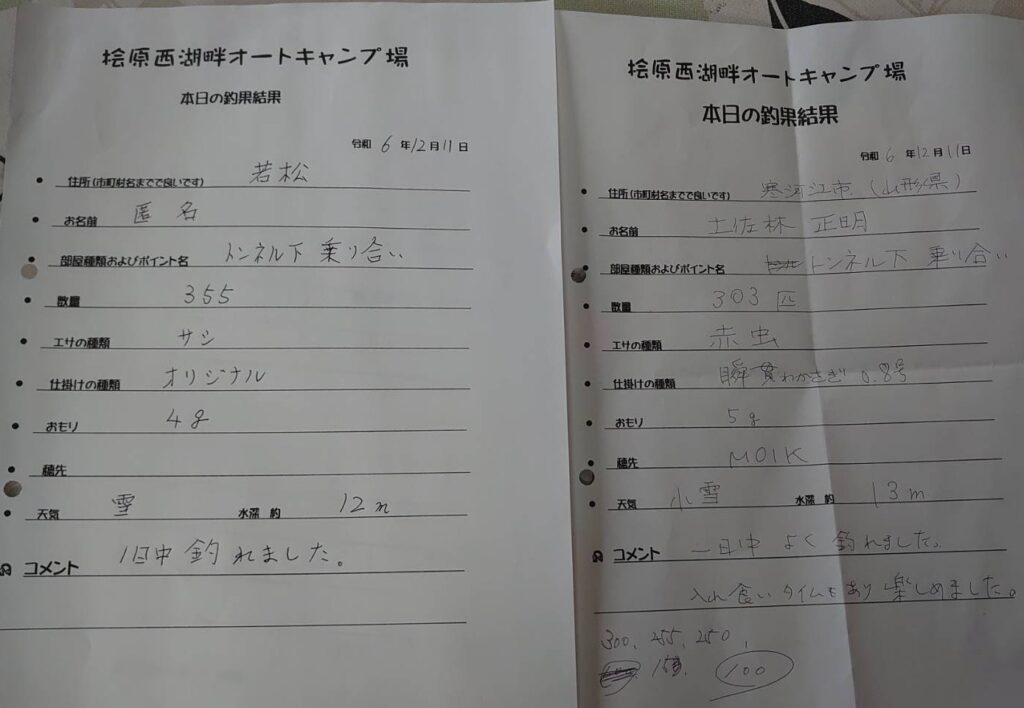 桧原西湖畔オートキャンプ場
本日の釣果結果
令和 6 年 12 月 11 日
住所(市町村名までで良いです) 若松
お名前 匿名
部屋種類およびポイント名 トンネル下 乗り合い
数量 355
エサの種類 サシ
仕掛けの種類 オリジナル
おもり 4g
穂先
天気 雪 水深 約 12m
コメント 1日中釣れました。
桧原西湖畔オートキャンプ場
本日の釣果結果
令和 6 年 12 月 11 日
住所(市町村名までで良いです) 寒河江市(山形県)
お名前 土佐林 正明
部屋種類およびポイント名 トンネル下 乗り合い
数量 303匹
エサの種類 赤虫
仕掛けの種類 瞬貫わかさぎ 0.8号
おもり 5g
穂先 M01K
天気 小雪 水深 約 13m
コメント 一日中よく釣れました。
入れ食いタイムもあり楽しめました。
300、255、250、
100